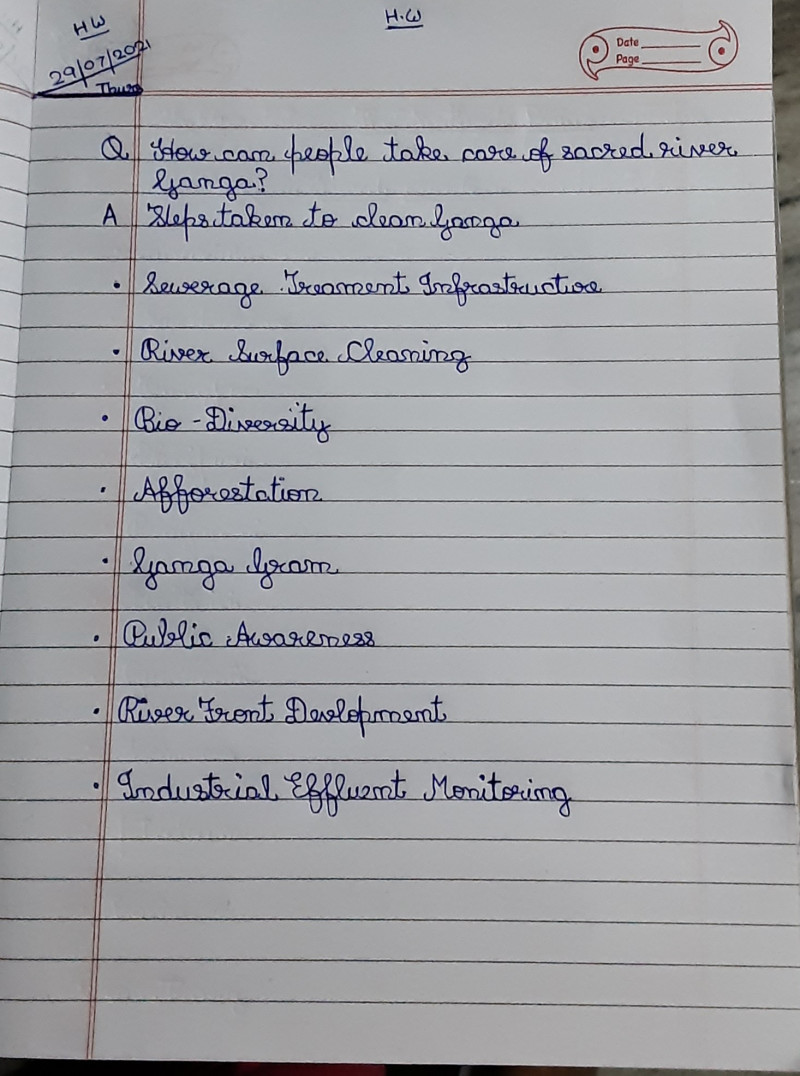 HW
H.W
29/07/2021
Thurs
Date
Page
Q How can people take care of sacred river
Ganga?
A Steps taken to clean Ganga
• Sewerage Treament Infrastructure
• River Surface Cleaning
• Bio-Diversity
• Afforestation
• Ganga Gram
• Public Awareness
• River Front Devlopment
• Industrial Effluent Monitoring